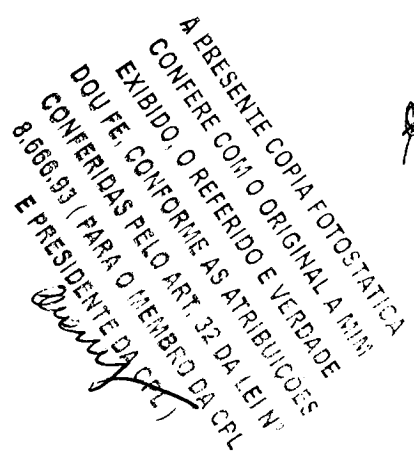 A PRESENTE COPIA FOTOSTATICA
CONFERE COM O ORIGINAL A MIM
EXIBIDO, O REFERIDO E VERDADE
DOU FE, CONFORME AS ATRIBUICOES
CONFERIDAS PELO ART. 32 DA LEI Nº
8.666,93 ( PARA O MEMBRO DA CPL
E PRESIDENTE DA CPL )